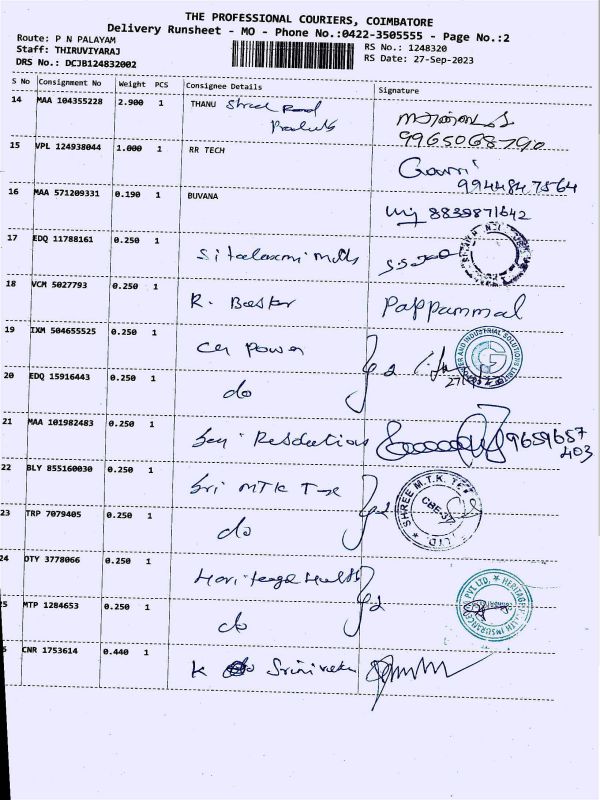 THE PROFESSIONAL COURIERS, COIMBATORE
Delivery Runsheet - MO - Phone No.:0422-3505555 - Page No.:2
Route: P N PALAYAM
RS No.: 1248320
Staff: THIRUVIYARAJ
RS Date: 27-Sep-2023
DRS No.: DCJB124832002
S No Consignment No Weight PCS Consignee Details Signature
14 MAA 104355228 2.900 1 THANU
Products
9965068790
15 VPL 124938044 1.000 1 RR TECH
Gowri
9944847564
16 MAA 571209331 0.190 1 BUVANA
8839871642
17 EDQ 11788161 0.250 1
Sitalaxmi Mills
18 VCM 5027793 0.250 1
R. Basker Pappammal
19 IXM 504655525 0.250 1
Power 2
POWER AND INDUSTRIAL SOLUTIONS LIMITED
G
20 EDQ 15916443 0.250 1
do
21 MAA 101982483 0.250 1
9659657
403
22 BLY 855160030 0.250 1
Sri MTK Tex 2
SHREE M.T.K. TEX
CBE-37
23 TRP 7079405 0.250 1
do
24 OTY 3778066 0.250 1
Heritage Health 2
HERITAGE HEALTH INSURANCE PVT LTD.
5 MTP 1284653 0.250 1
do
6 CNR 1753614 0.440 1
K Srinivasan